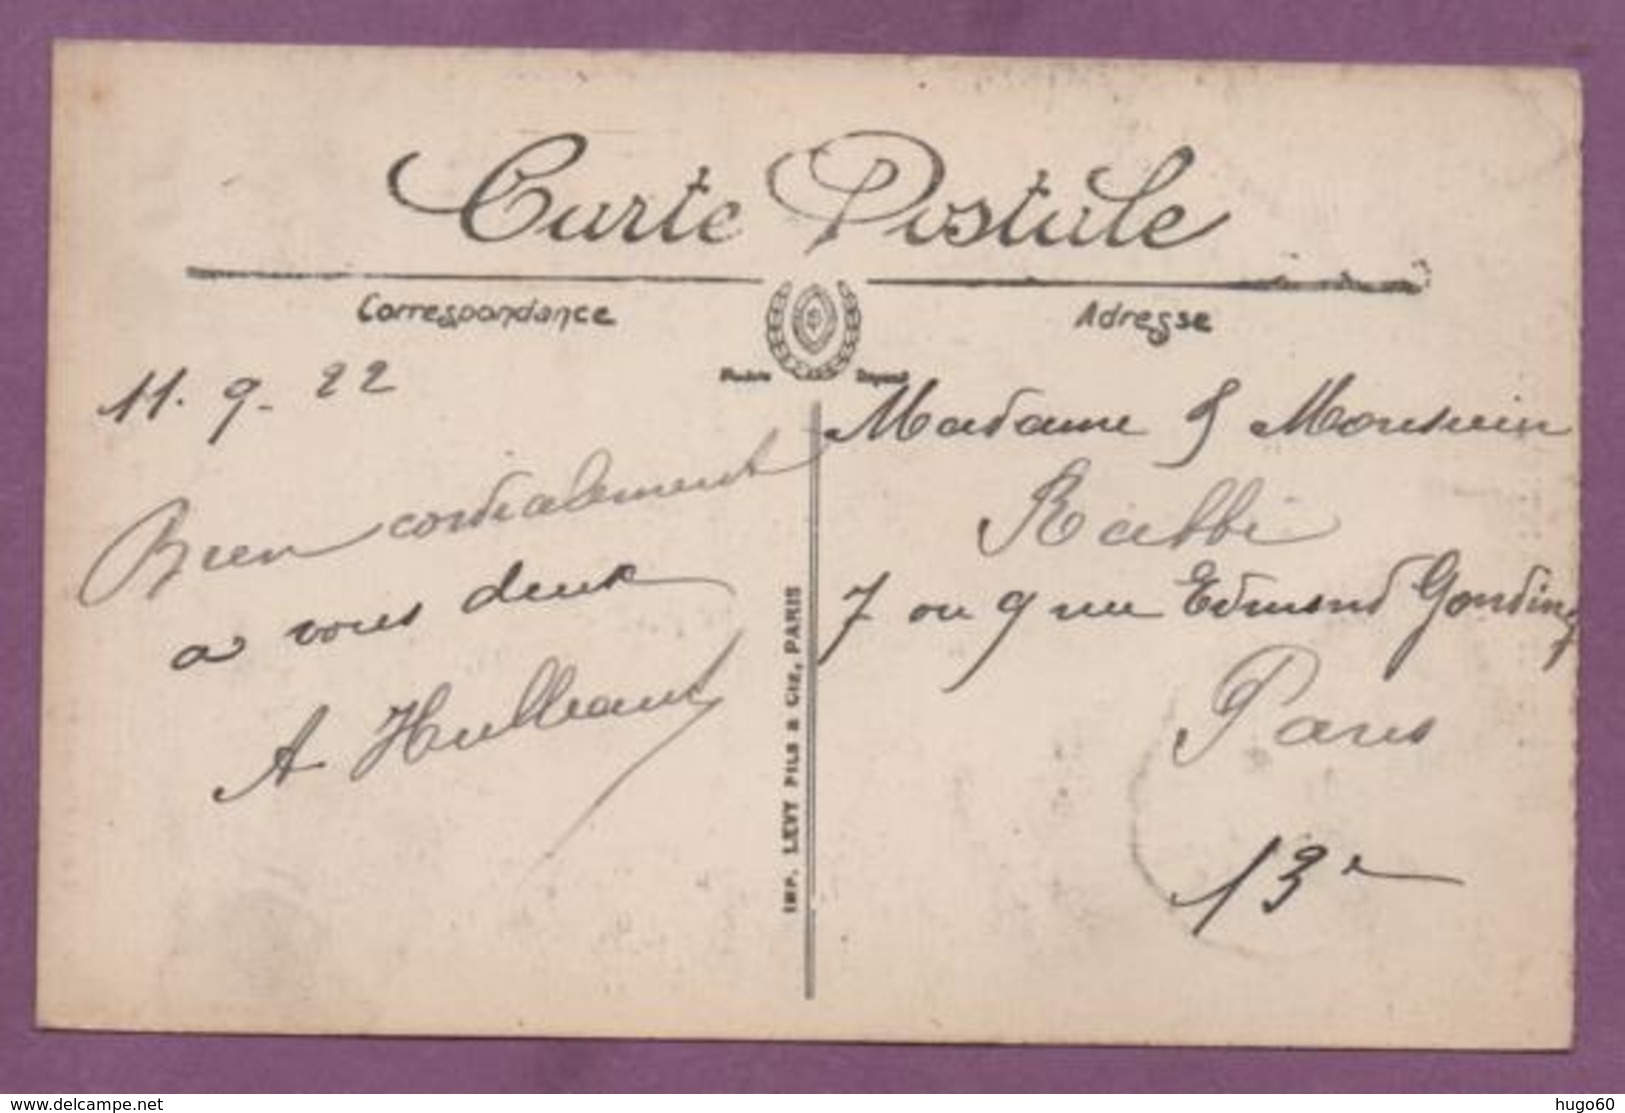 Carte Postale
Correspondance
Adresse
Modèle Déposé
11. 9. 22
Bien cordialement
a vous deux
A Hulleaux
Madame & Monsieur
Rabbi
7 ou 9 rue Edmond Gondinet
Paris
13e
IMP. LEVY FILS & CIE, PARIS
delcampe.net
hugo60